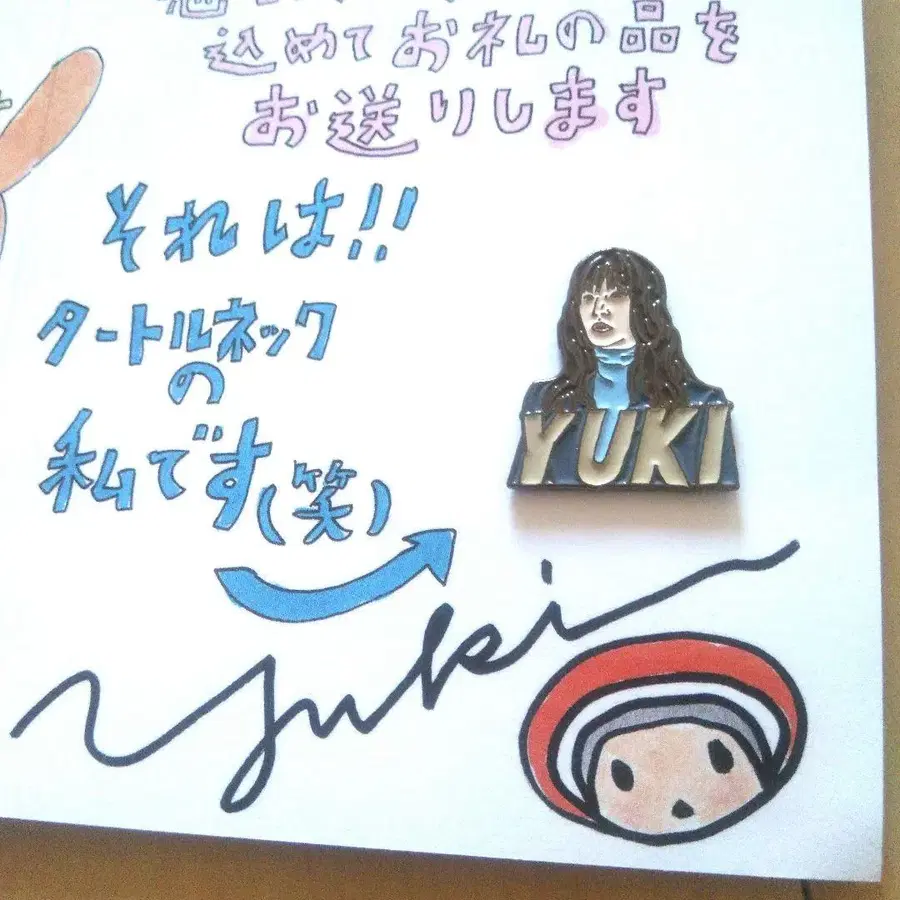 込めてお礼の品を
お送りします
それは!!
タートルネック
の
私です(笑)
YUKI
yuki